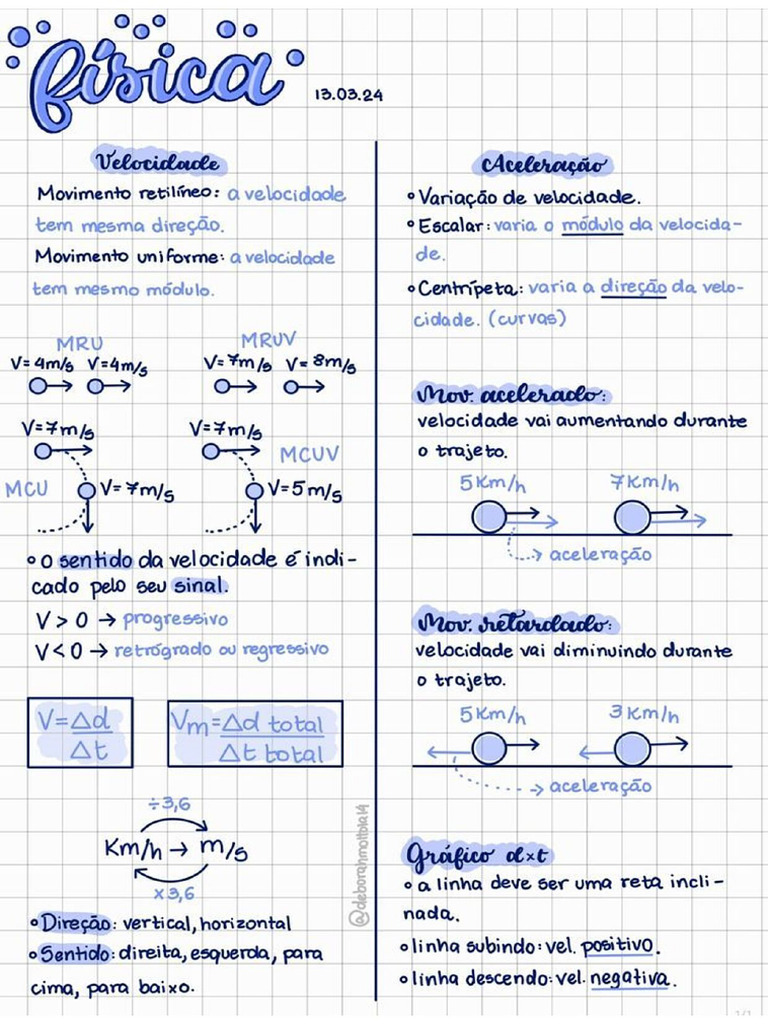 física
13.03.24
Velocidade
Movimento retilíneo: a velocidade
tem mesma direção.
Movimento uniforme: a velocidade
tem mesmo módulo.
MRU
V=4m/s V=4m/s
MRUV
V=7m/s V=8m/s
V=7m/s
MCU
V=7m/s
V=7m/s
MCUV
V=5m/s
• o sentido da velocidade é indi-
cado pelo seu sinal.
V > 0 → progressivo
V < 0 → retrógrado ou regressivo
V = Δd
Δt
Vm = Δd total
Δt total
÷3,6
Km/h → m/s
x3,6
• Direção: vertical, horizontal
• Sentido: direita, esquerda, para
cima, para baixo.
@deborahmottola14
Aceleração
• Variação de velocidade.
• Escalar: varia o módulo da velocida-
de.
• Centrípeta: varia a direção da velo-
cidade. (curvas)
Mov. acelerado:
velocidade vai aumentando durante
o trajeto.
5Km/h 7Km/h
aceleração
Mov. retardado:
velocidade vai diminuindo durante
o trajeto.
5Km/h 3Km/h
aceleração
Gráfico dxt
• a linha deve ser uma reta incli-
nada.
• linha subindo: vel. positivo.
• linha descendo: vel. negativa.
1/1